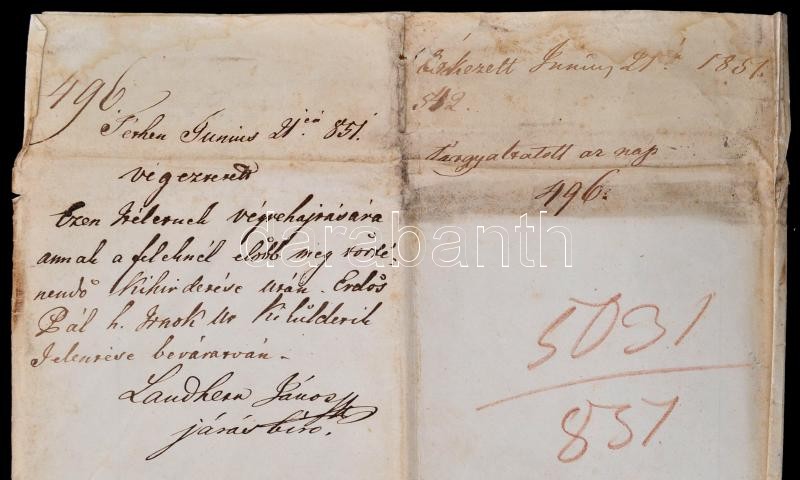 496
Junius 21én 851.
végeztetett
Ezen Itéletnek végrehajtására
annak a feleknél előbb meg törté-
nendő kihirdetése után. Erdős
Pál h. Irnok Ur Kiküldetik
Jelentése beváratván.
Landherr János
járásbiró.
Érkezett Junius 21én 1851.
542.
Targyaltatott az nap
496.
5031
851
darabanth